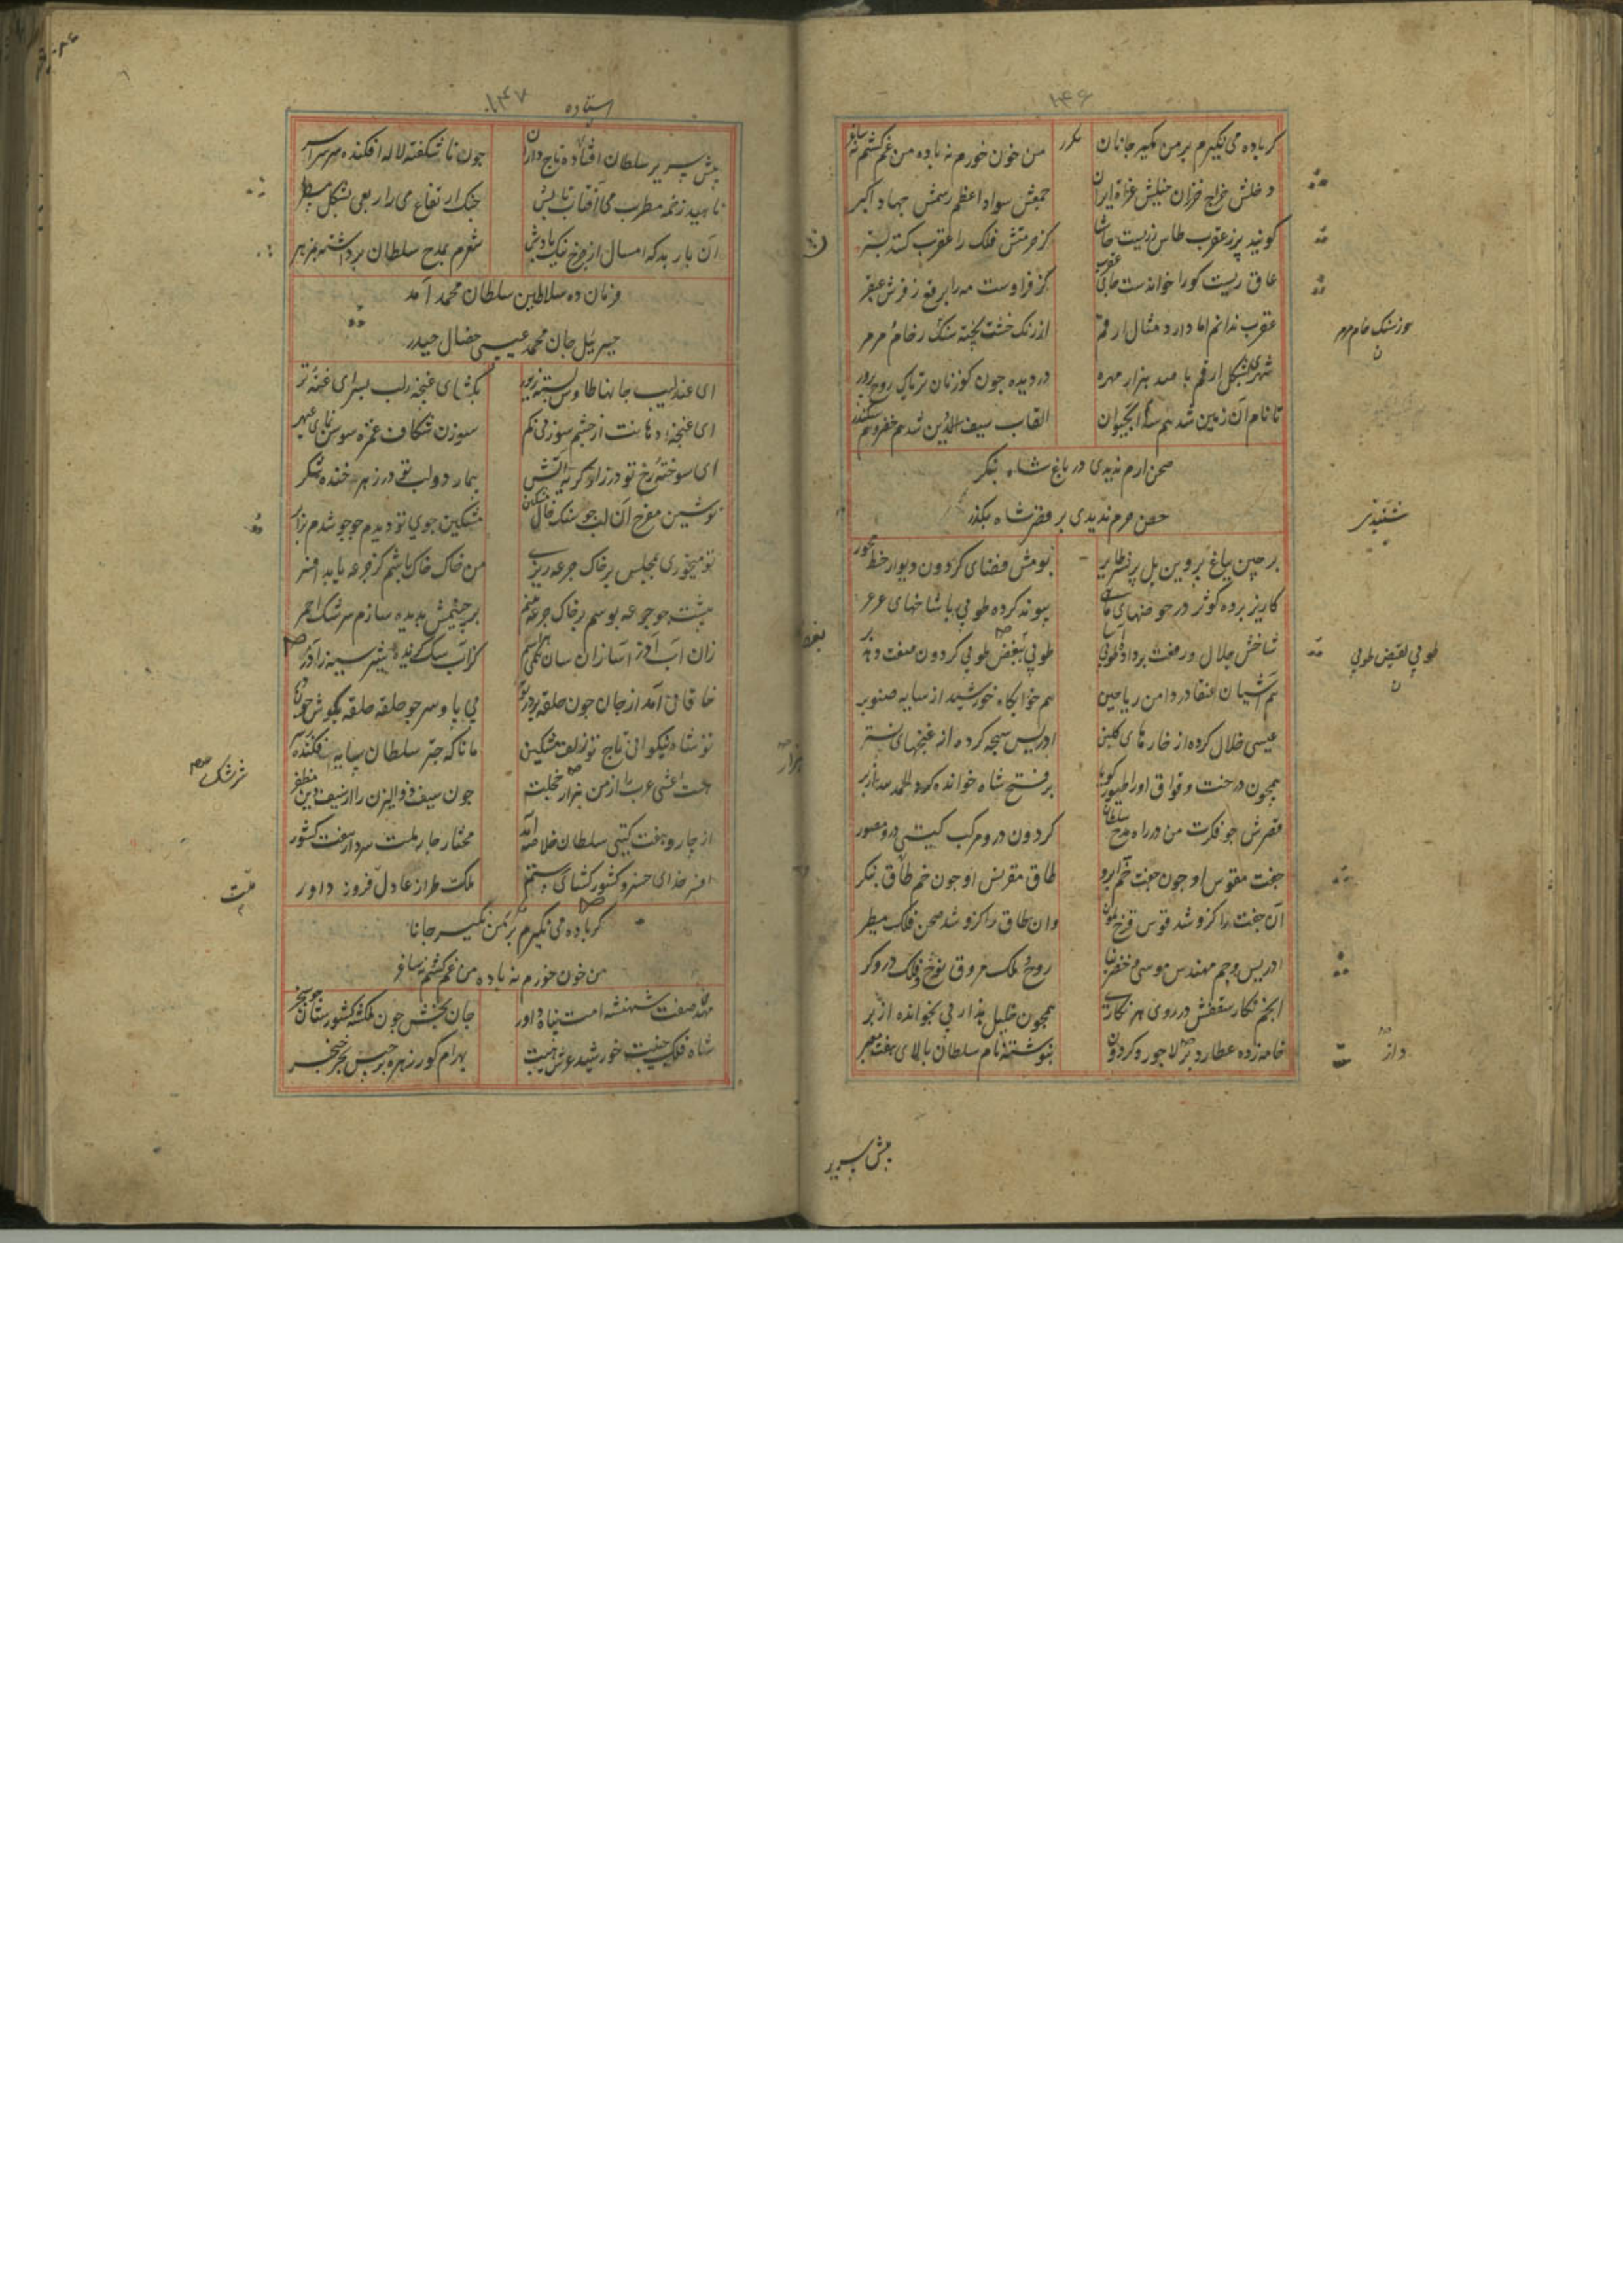 ۱۴۶
کر باده می نکیرم بر من مکیر جانان مکرر من خون خورم نه باده من غم کشم نه ساغر
دخلش خراج خزران خیلش غزاة ایران جمعش سواد اعظم رسمش جهاد اکبر
کویند پر ز عقرب طاس زریست حاشا کز حرمتش فلک را عقرب کند
عاق ریست کورا خواندست جای عقرب کز فر اوست مه را برقع ز فرش عبقر
عقرب ندانم اما دارد مثال ارقم از رنک خشت پخته سنک رخام و مرمر
شهری بشکل ارقم با صد هزار مهره در دیده چون کوزنان تریاک روح پرور
تا نام آن زمین شد هم سد آبحیوان القاب سیف الدین شد هم خضر و هم سکندر
صحن ارم ندیدی در باغ شاه بنکر
حصن حرم ندیدی بر قصر شاه بکذر
برچین باغ پروین بل پر نسر طایر بومش فضای کردون دیوار خط محور
کاریز برده کوثر در حوضهای ماهی پیوند کرده طوبی با شاخهای عرعر
شاخش جلال و رفعت برداده طوبی آسا طوبی ببغض طوبی کردون صفت
هم آشیان عنقا در دامن ریاحین هم خوابکاه خورشید از سایه صنوبر
عیسی خلال کرده از خارهای کلبن ادریس سبحه کرده از غنچهای نستر
همچون درخت وقواق اورا طیور کویا بر فتح شاه خوانده کرد الحمد
قصرش چو فکرت من در راه مدح سلطان کردون درو مرکب کیتی درو مصور
جفت مقوس او چون جفت خم ابرو طاق مقرنس او چون خم طاق بنکر
آن جفت را کزو شد قوس قزح ملون وان طاق را کزو شد صحن فلک مسطر
ادریس و جم مهندس موسی و خضر بنا روح و ملک مزوق نوح و فلک دروکر
انجم نکار سقفش در روی هر نکاری همچون خلیل هذا ربی بخوانده از بر
خامه زده عطارد بر لاجورد کردون بنوشته نام سلطان بالای هفت
سوز سنک خام مرمر
شنیدی
طوبی نقیض طوبی
دار
پیش سریر
۱۴۷
استاده
پیش سریر سلطان افتاده تاج داران چون ناشکفته لاله افکنده سر سراسر
ناهید زخمه مطرب می آفتاب تابش چنک ارتفاع می را ربعی بشکل مسطر
آن باربد که امسال از چرخ نیک بادش شعرم بمدح سلطان برداشته
فرمان ده سلاطین سلطان محمد آمد
جبریل جان محمد عیسی خصال حیدر
ای عندلیب جانها طاوس بسته زیور بکشای غنچه لب بسرای غنه تر
ای غنچه دهانت از چشم سوزنی کم سوزن شکاف غمزه سوسن نمای عبهر
ای سوخته رخ تو در زار کریه آتش بیمار دو لب تو در زهر خنده شکر
نوشین مفرح آن لب جو سنک خال مشکین مشکین جوی تو دیدم جوجو شدم برابر
تو میخوری بمجلس بر خاک جرعه ریزی من خاک خاک باشم کز جرعه یابد افسر
پشت چو جرعه بوسم بر خاک جرعه چینم بر چشمش بدیده سازم سرشک احمر
زان آب آذر آسا زان سان همی هراسم کز آب سک کزیده شیر سیه ز آذر
خاقانی آمد از جان چون حلقه بر در تو بی پا و سر چو حلقه حلقه بکوش چون در
تو شاه نیکوانی تاج تو زلف مشکین مانا که چتر سلطان سایه فکنده بر سر
هست اعشی عرب را از من هزار خجلت چون سیف ذوالیزن را از سیف دین مظفر
از چار و هفت کیتی سلطان خلاصه آمد مختار چار ملت سردار هفت کشور
افسر خدای خسرو کشور کشای رستم ملکت طراز عادل فروز داور
کر باده می نکیرم بر من مکیر جانا
من خون خورم نه باده من غم کشم نه ساغر
مهدی صفت شهنشه امت پناه داور جان بخش چون ملکشه کشورستان چو سنجر
شاه فلک جنیبت خورشید عرش هیبت بهرام کور زهره برجیس بحر خنجر
سرشک
ملت